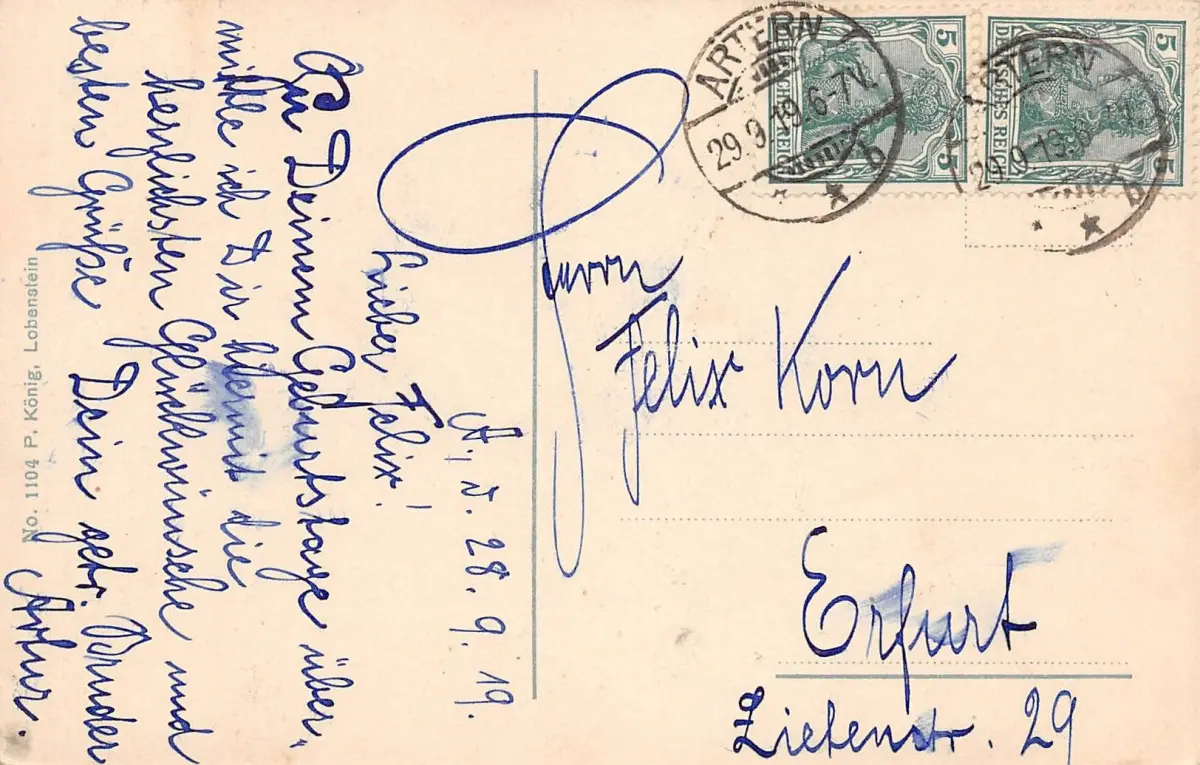 A., d. 28. 9. 19.
Lieber Felix!
Zu Deinem Geburtstage über,
mittle ich Dir hiermit die
herzlichsten Glückwünsche und
besten Grüße Dein getr. Bruder
Artur.
No. 1104 P. König, Lobenstein
ARTERN
29.9.19.6-7N.
* b
DEUTSCHES REICH
5 5
ARTERN
29.9.19.6-7N.
* b
DEUTSCHES REICH
5 5
Herrn
Felix Korn
Erfurt
Zietenstr. 29